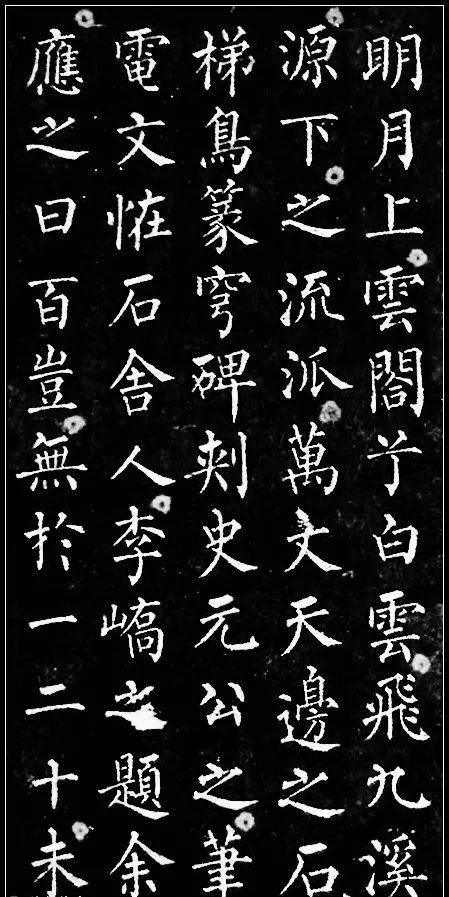 明月上雲閣兮白雲飛九溪
源下之流派萬丈天邊之石
梯鳥篆穹碑刺史元公之筆
電文恠石舍人李嶠之題余
應之曰百豈無於一二十未